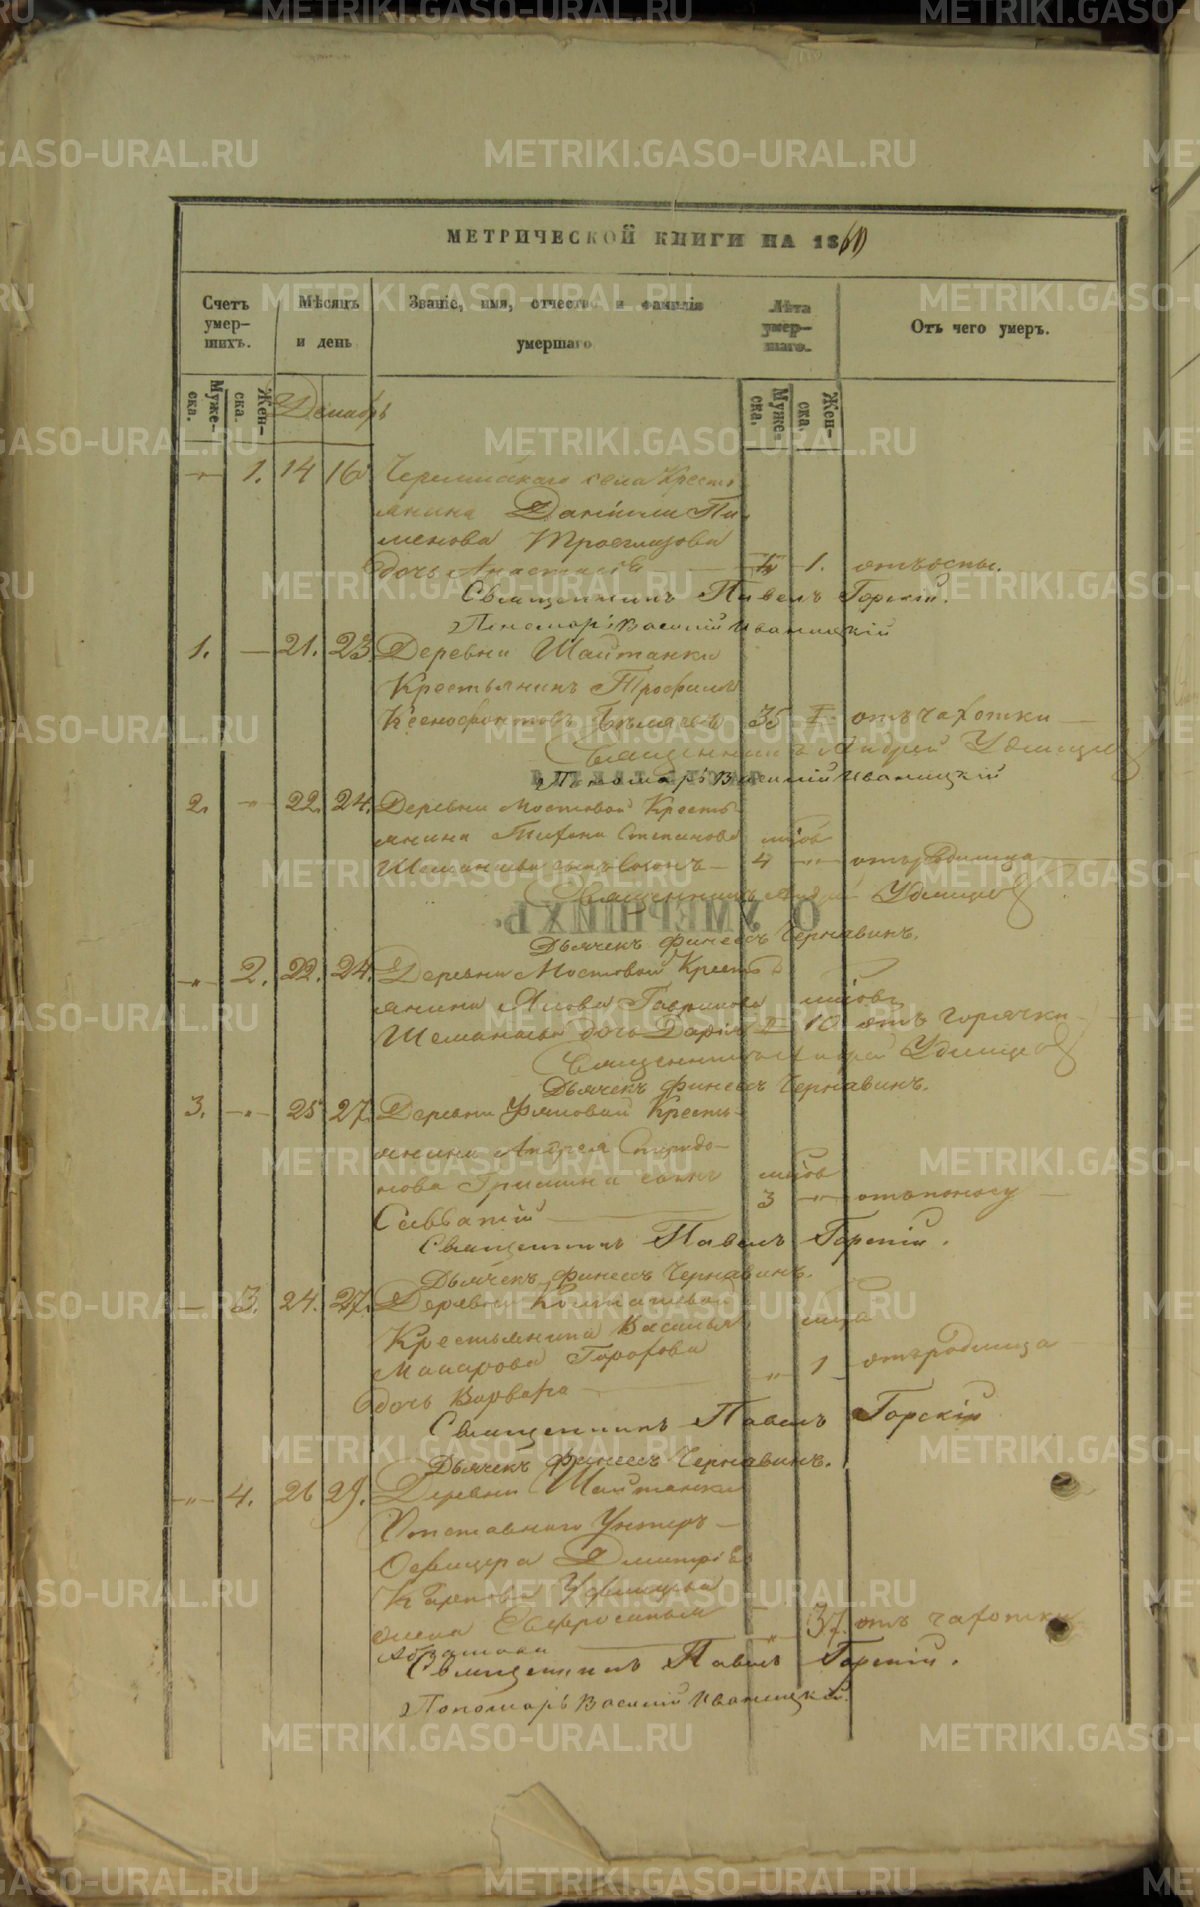 МЕТРИЧЕСКОЙ КНИГИ НА 1860
Счетъ умер-шихъ.
Мѣсяцъ и день
Званіе, имя, отчество и фамилія умершаго.
Лѣта умер-шаго.
Отъ чего умеръ.
Муже-ска.
Жен-ска.
Муже-ска.
Жен-ска.
Декабрь
1. 14 16 села Кресть
янина Даніила Пи
менова Троеглазова
дочь Анастасія 1. отъ оспы.
Священникъ Павелъ Горскій.
Пономарь Василій Иваницкій
1. 21. 23. Деревни Шайтанки
Крестьянинъ Трофимъ
Ксенофонтовъ 35 отъ чахотки
Священникъ Андрей Удинцев
Пономарь Василій Иваницкій
2. 22. 24. Деревни Мостовой Кресть
янина Тихона Степанова
сынъ 4 отъ родимца
Священникъ Андрей Удинцев
О УМЕРШИХЪ.
Дьячекъ Финеесъ Чернавинъ.
2. 22. 24. Деревни Мостовой Кресть
янина Гаврилова
дочь Дарія 10 отъ горячки
Священникъ Андрей Удинцев
Дьячекъ Финеесъ Чернавинъ.
3. 25 27. Деревни Кресть-
янина Андрея Спиридо-
нова сынъ
3 отъ поносу
Савватій
Священникъ Павелъ Горскій.
Дьячекъ Финеесъ Чернавинъ.
3. 24. 27. Деревни
Крестьянина Василья
Макарова Горохова
1 отъ родимца
дочь Варвара
Священникъ Павелъ Горскій
Дьячекъ Финеесъ Чернавинъ.
4. 26 29. Деревни Шайтанки
Отставнаго Унтеръ-
Офицера Дмитрія
Карпова
жена
37. отъ чахотки
Священникъ Павелъ Горскій.
Пономарь Василій Иваницкій.
METRIKI.GASO-URAL.RU